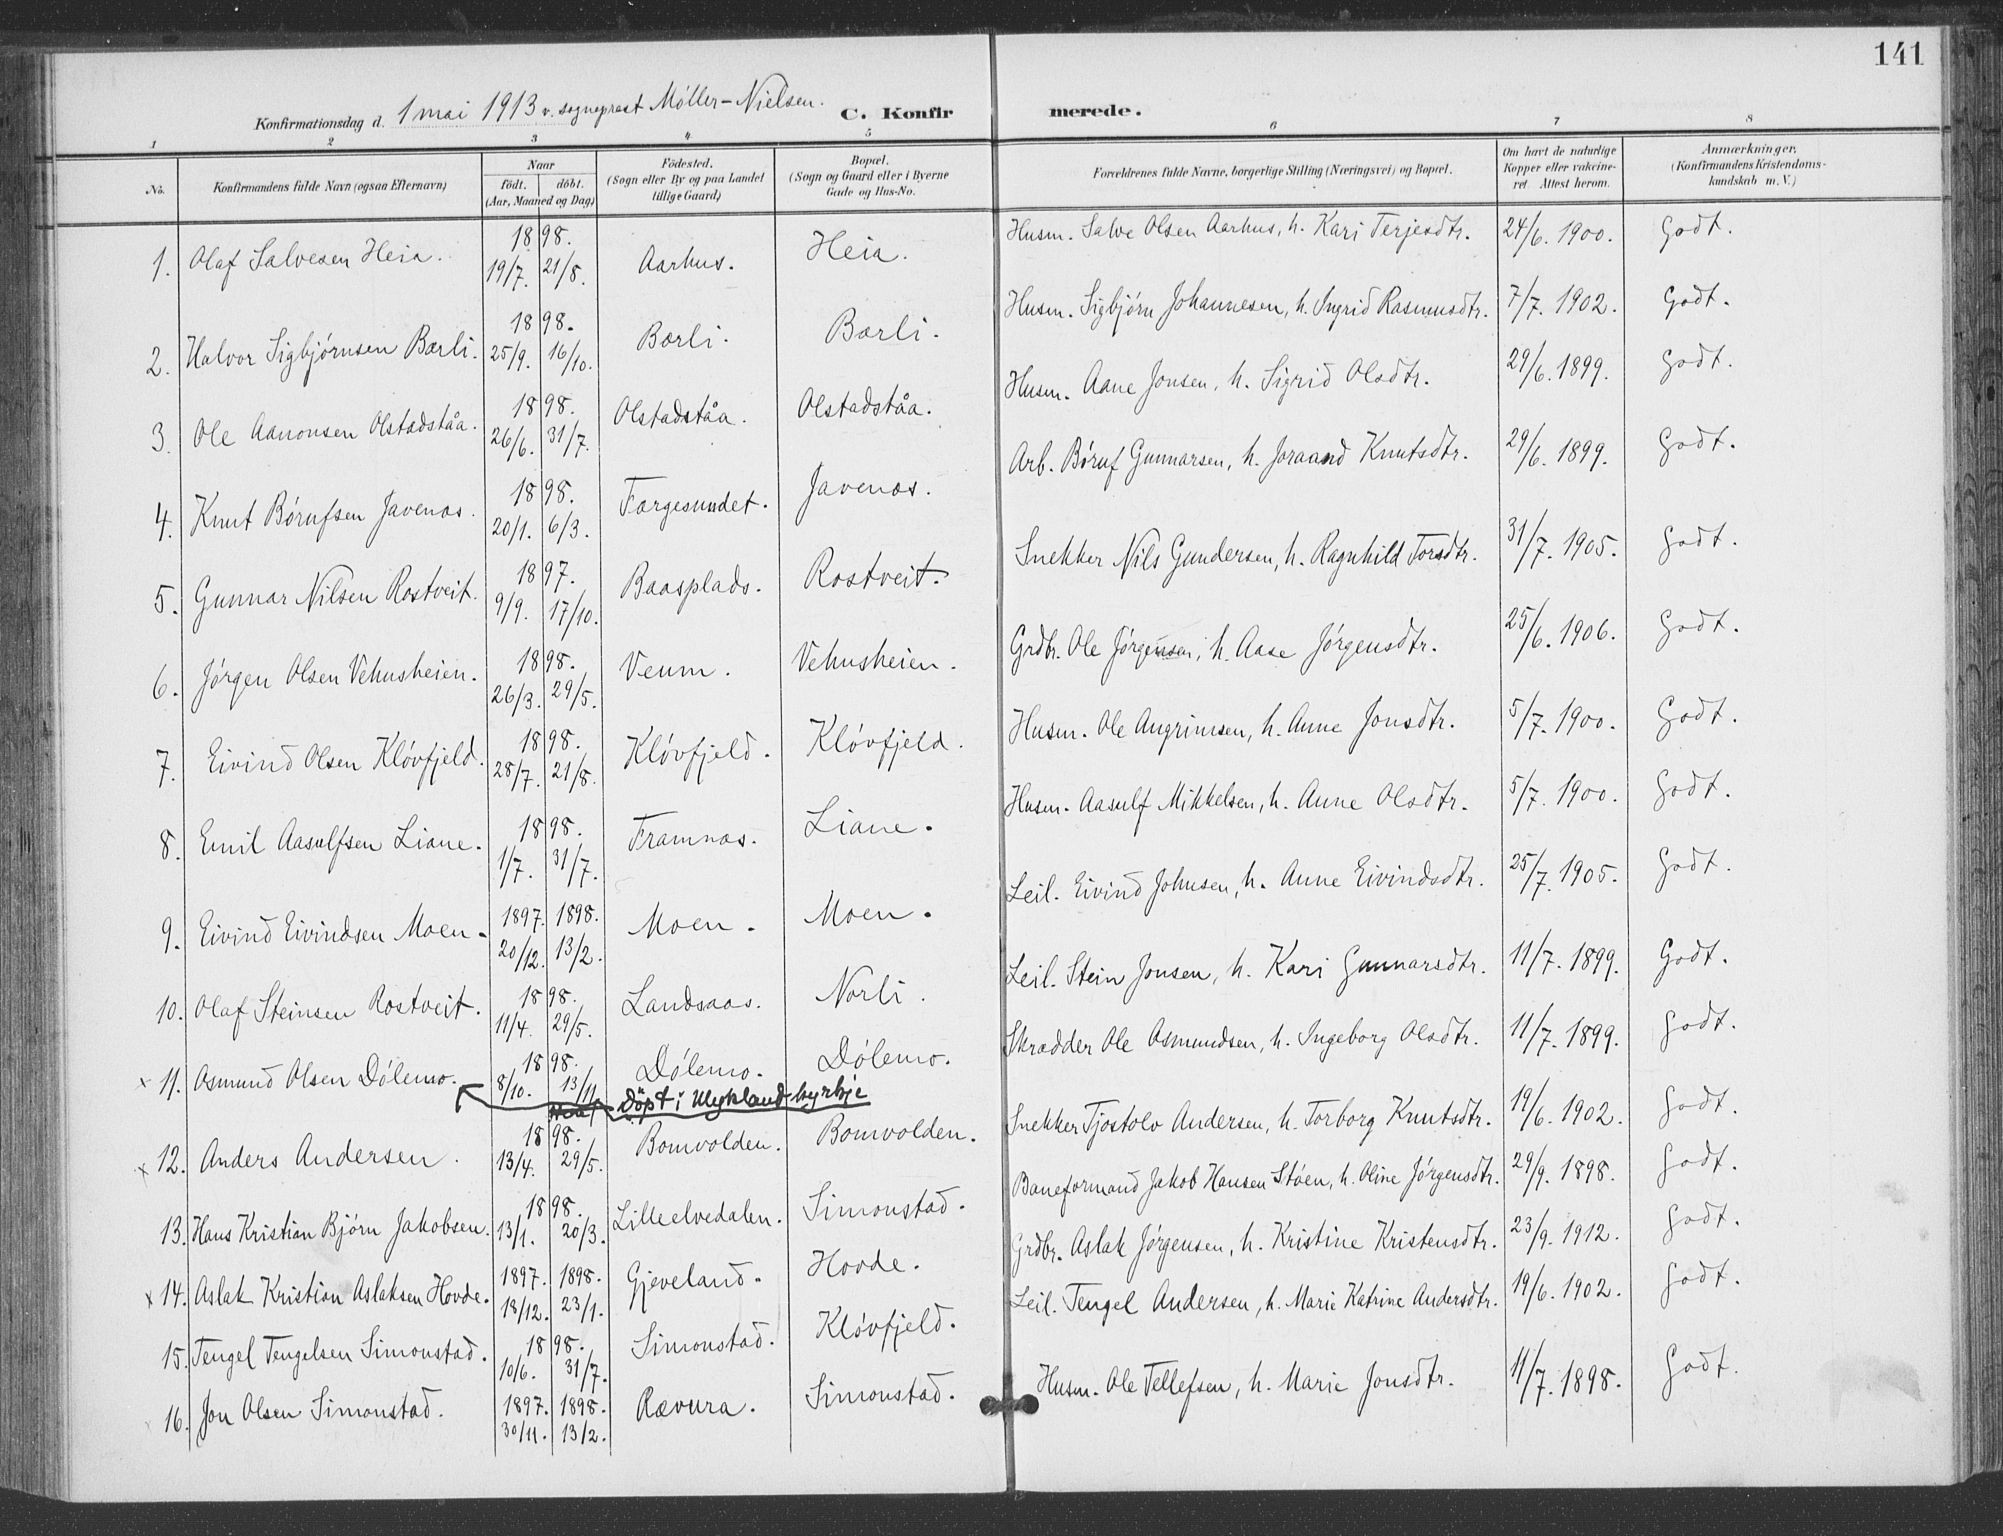 141
Konfirmationsdag d. 1 mai 1913 v. sogneprest Møller-Nielsen. C. Konfirmerede.
1 2 3 4 5 6 7 8
No. Konfirmandens fulde Navn (ogsaa Efternavn) Naar født. døbt. (Aar, Maaned og Dag) Födested. (Sogn eller By og paa Landet tillige Gaard) Bopæl. (Sogn og Gaard eller i Byerne Gade og Hus-No. Forældrenes fulde Navne, borgerlige Stilling (Næringsvei) og Bopæl. Om havt de naturlige Kopper eller vakcineret. Attest herom. Anmærkninger. (Konfirmandens Kristendomskundskab m. V.)
1. Olaf Salvesen Heia. 1898. 19/7. 21/8. Aarhus. Heia. Husm. Salve Olsen Aarhus, h. Kari Terjesdtr. 24/6. 1900. Godt.
2. Halvor Sigbjørnsen Bærli. 1898. 25/9. 16/10. Bærli. Bærli. Husm. Sigbjørn Johannesen, h. Ingrid Rasmusdtr. 7/7. 1902. Godt.
3. Ole Aanonsen Olstadståa. 1898. 26/6. 31/7. Olstadståa. Olstadståa. Husm. Aane Jonsen, h. Sigrid Olsdtr. 29/6. 1899. Godt.
4. Knut Børufsen Javenæs. 1898. 20/1. 6/3. Færgesundet. Javenæs. Arb. Børuf Gunnarsen, h. Joraand Knutsdtr. 29/6. 1899. Godt.
5. Gunnar Nilsen Rostveit. 1897. 9/9. 17/10. Baasplads. Rostveit. Snekker Nils Gundersen, h. Ragnhild Torsdtr. 31/7. 1905. Godt.
6. Jørgen Olsen Vehusheien. 1898. 26/3. 29/5. Veum. Vehusheien. Grdbr. Ole Jørgensen, h. Aase Jørgensdtr. 25/6. 1906. Godt.
7. Eivind Olsen Kløvfjeld. 1898. 28/7. 21/8. Kløvfjeld. Kløvfjeld. Husm. Ole Angrimsen, h. Anne Jonsdtr. 5/7. 1900. Godt.
8. Emil Aasulfsen Liane. 1898. 1/7. 31/7. Framnæs. Liane. Husm. Aasulf Mikkelsen, h. Anne Olsdtr. 5/7. 1900. Godt.
9. Eivind Eivindsen Moen. 1897. 1898. 20/12. 13/2. Moen. Moen. Leil. Eivind Johnsen, h. Anne Eivindsdtr. 25/7. 1905. Godt.
10. Olaf Steinsen Rostveit. 1898. 11/4. 29/5. Landsaas. Norli. Leil. Stein Jonsen, h. Kari Gunnarsdtr. 11/7. 1899. Godt.
x 11. Osmund Olsen Dølemo. 1898. 8/10. 13/11 Dølemo. Dølemo. Skrædder Ole Osmundsen, h. Ingeborg Olsdtr. 11/7. 1899. Godt.
Døpt i Mykland kyrkje
x 12. Anders Andersen. 1898. 13/4. 29/5. Bomvolden. Bomvolden. Snekker Tjostolv Andersen, h. Torborg Knutsdtr. 19/6. 1902. Godt.
13. Hans Kristian Bjørn Jakobsen. 1898. 13/1. 20/3. Lilleelvedalen. Simonstad. Baneformand Jakob Hansen Støen, h. Oline Jørgensdtr. 29/9. 1898. Godt.
x 14. Aslak Kristian Aslaksen Hovde. 1897. 1898. 18/12. 23/1. Gjeveland. Hovde. Grdbr. Aslak Jørgensen, h. Kristine Kristensdtr. 23/9. 1912. Godt.
15. Tengel Tengelsen Simonstad. 1898. 10/6. 31/7. Simonstad. Kløvfjeld. Leil. Tengel Andersen, h. Marie Katrine Andersdtr. 19/6. 1902. Godt.
16. Jon Olsen Simonstad. 1897. 1898. 30/11. 13/2. Rævura. Simonstad. Husm. Ole Tellefsen, h. Marie Jonsdtr. 11/7. 1898. Godt.